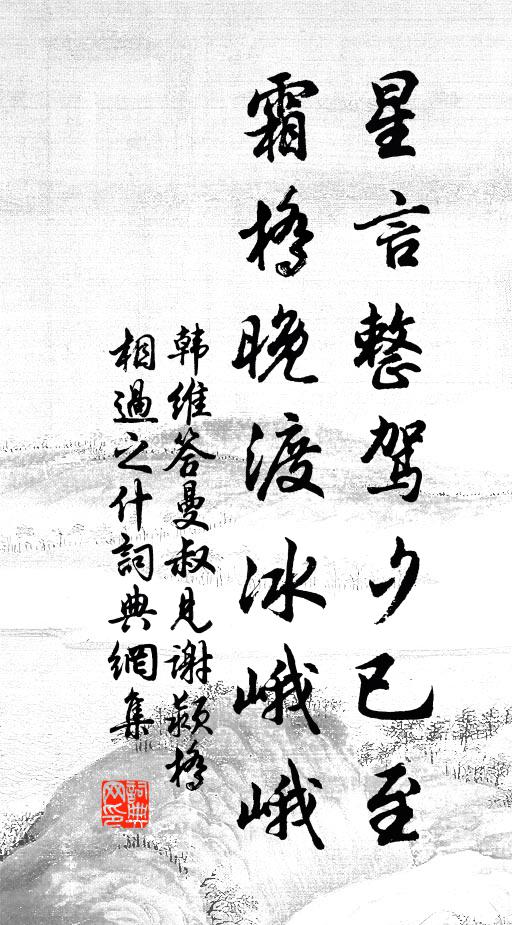 星言整驾夕已至
霜橋晚渡冰峨峨
韩维答曼叔見谢潁橋
相過之什詞典網集
詞典網印